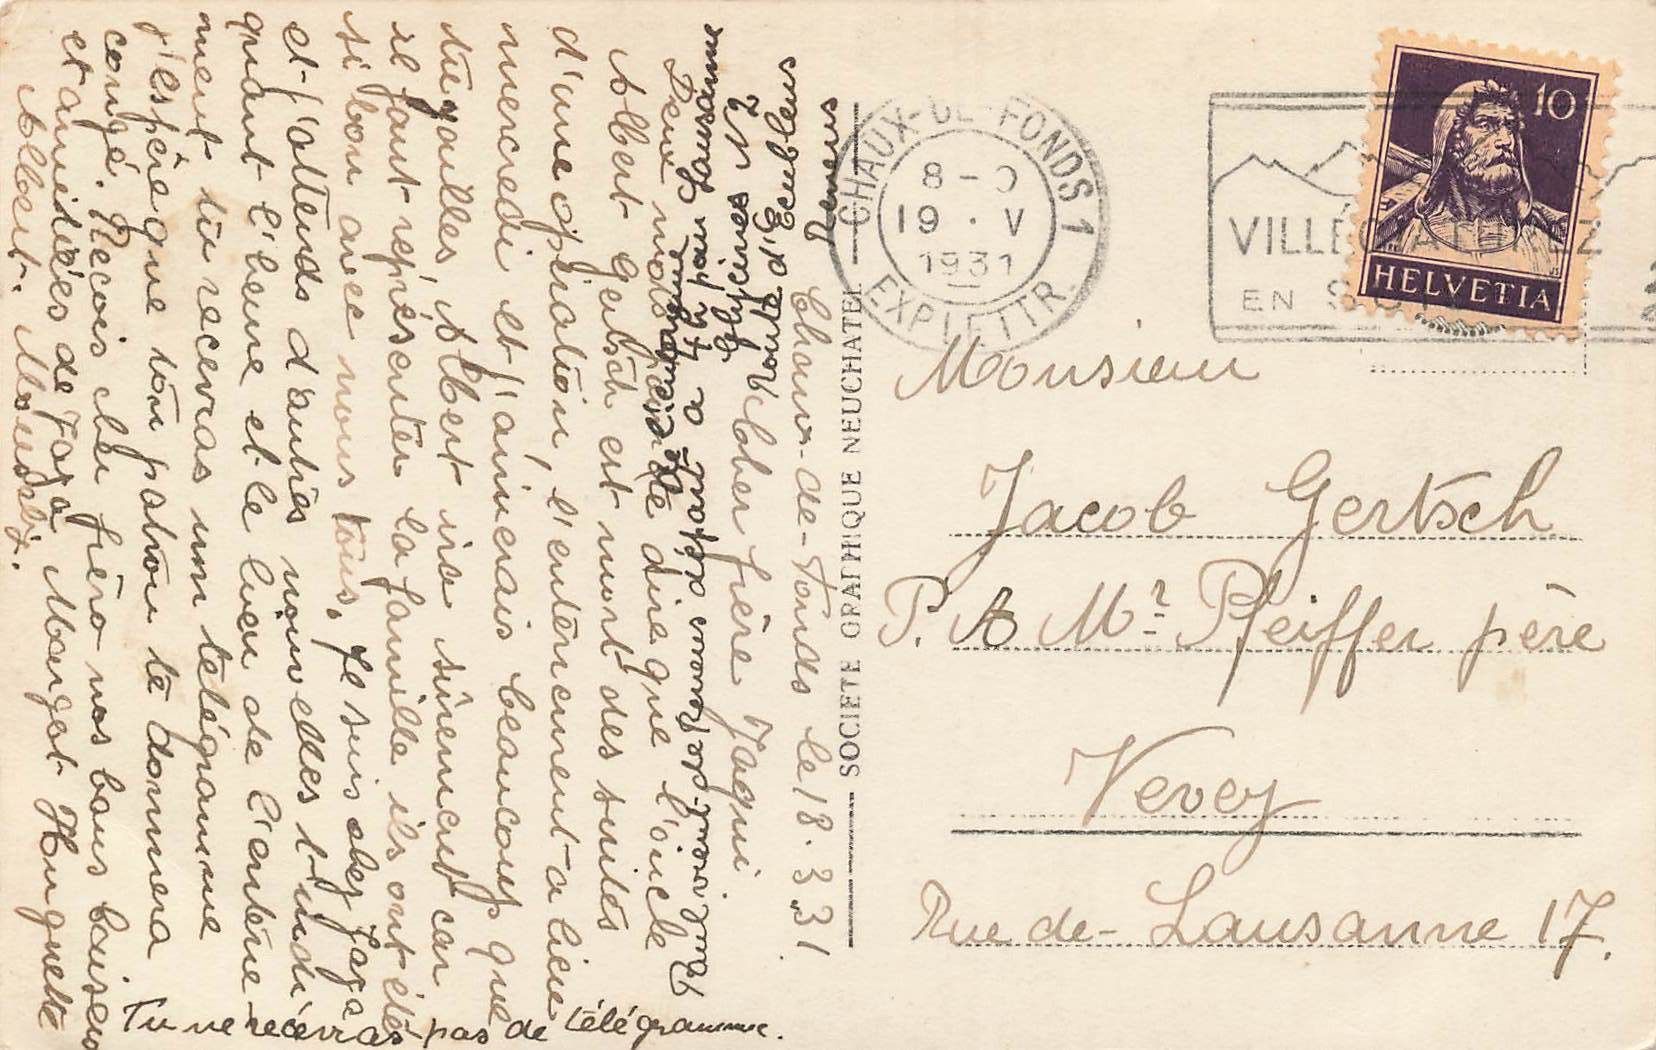 Chaux-de-Fonds le 18.3.31
Cher frère Jaqui.
Deux mots pour te dire que l'oncle
Albert Gertsch est mort des suites
d'une opération, l'enterrement a lieu
mercredi et j'aimerais beaucoup que
tu y ailles, Albert ira sûrement car
il faut représenter la famille ils ont été
si bon avec nous tous. Je suis chez Jaga
et j'attends d'autres nouvelles lundi
quant l'heure et le lieu de l'enterre-
ment tu recevras un télégramme
j'espère que ton patron te donnera
congé. Recois cher frèro nos bons baisers
et amitiées de Jaga Margot Huguette
Albert. Mousely.
Tu ne recevras pas de télégramme.
Lausanne
Glycines N 2
Route d'Ecublens
Renens
SOCIETE GRAPHIQUE NEUCHATEL
CHAUX-DE-FONDS 1
8-9
19.V
1931
EXP. LETTR.
VILLÉGIATUREZ
EN SUISSE
10
HELVETIA
Monsieur
Jacob Gertsch
P. A Mr Pfeiffer père
Vevey
Rue de Lausanne 17.